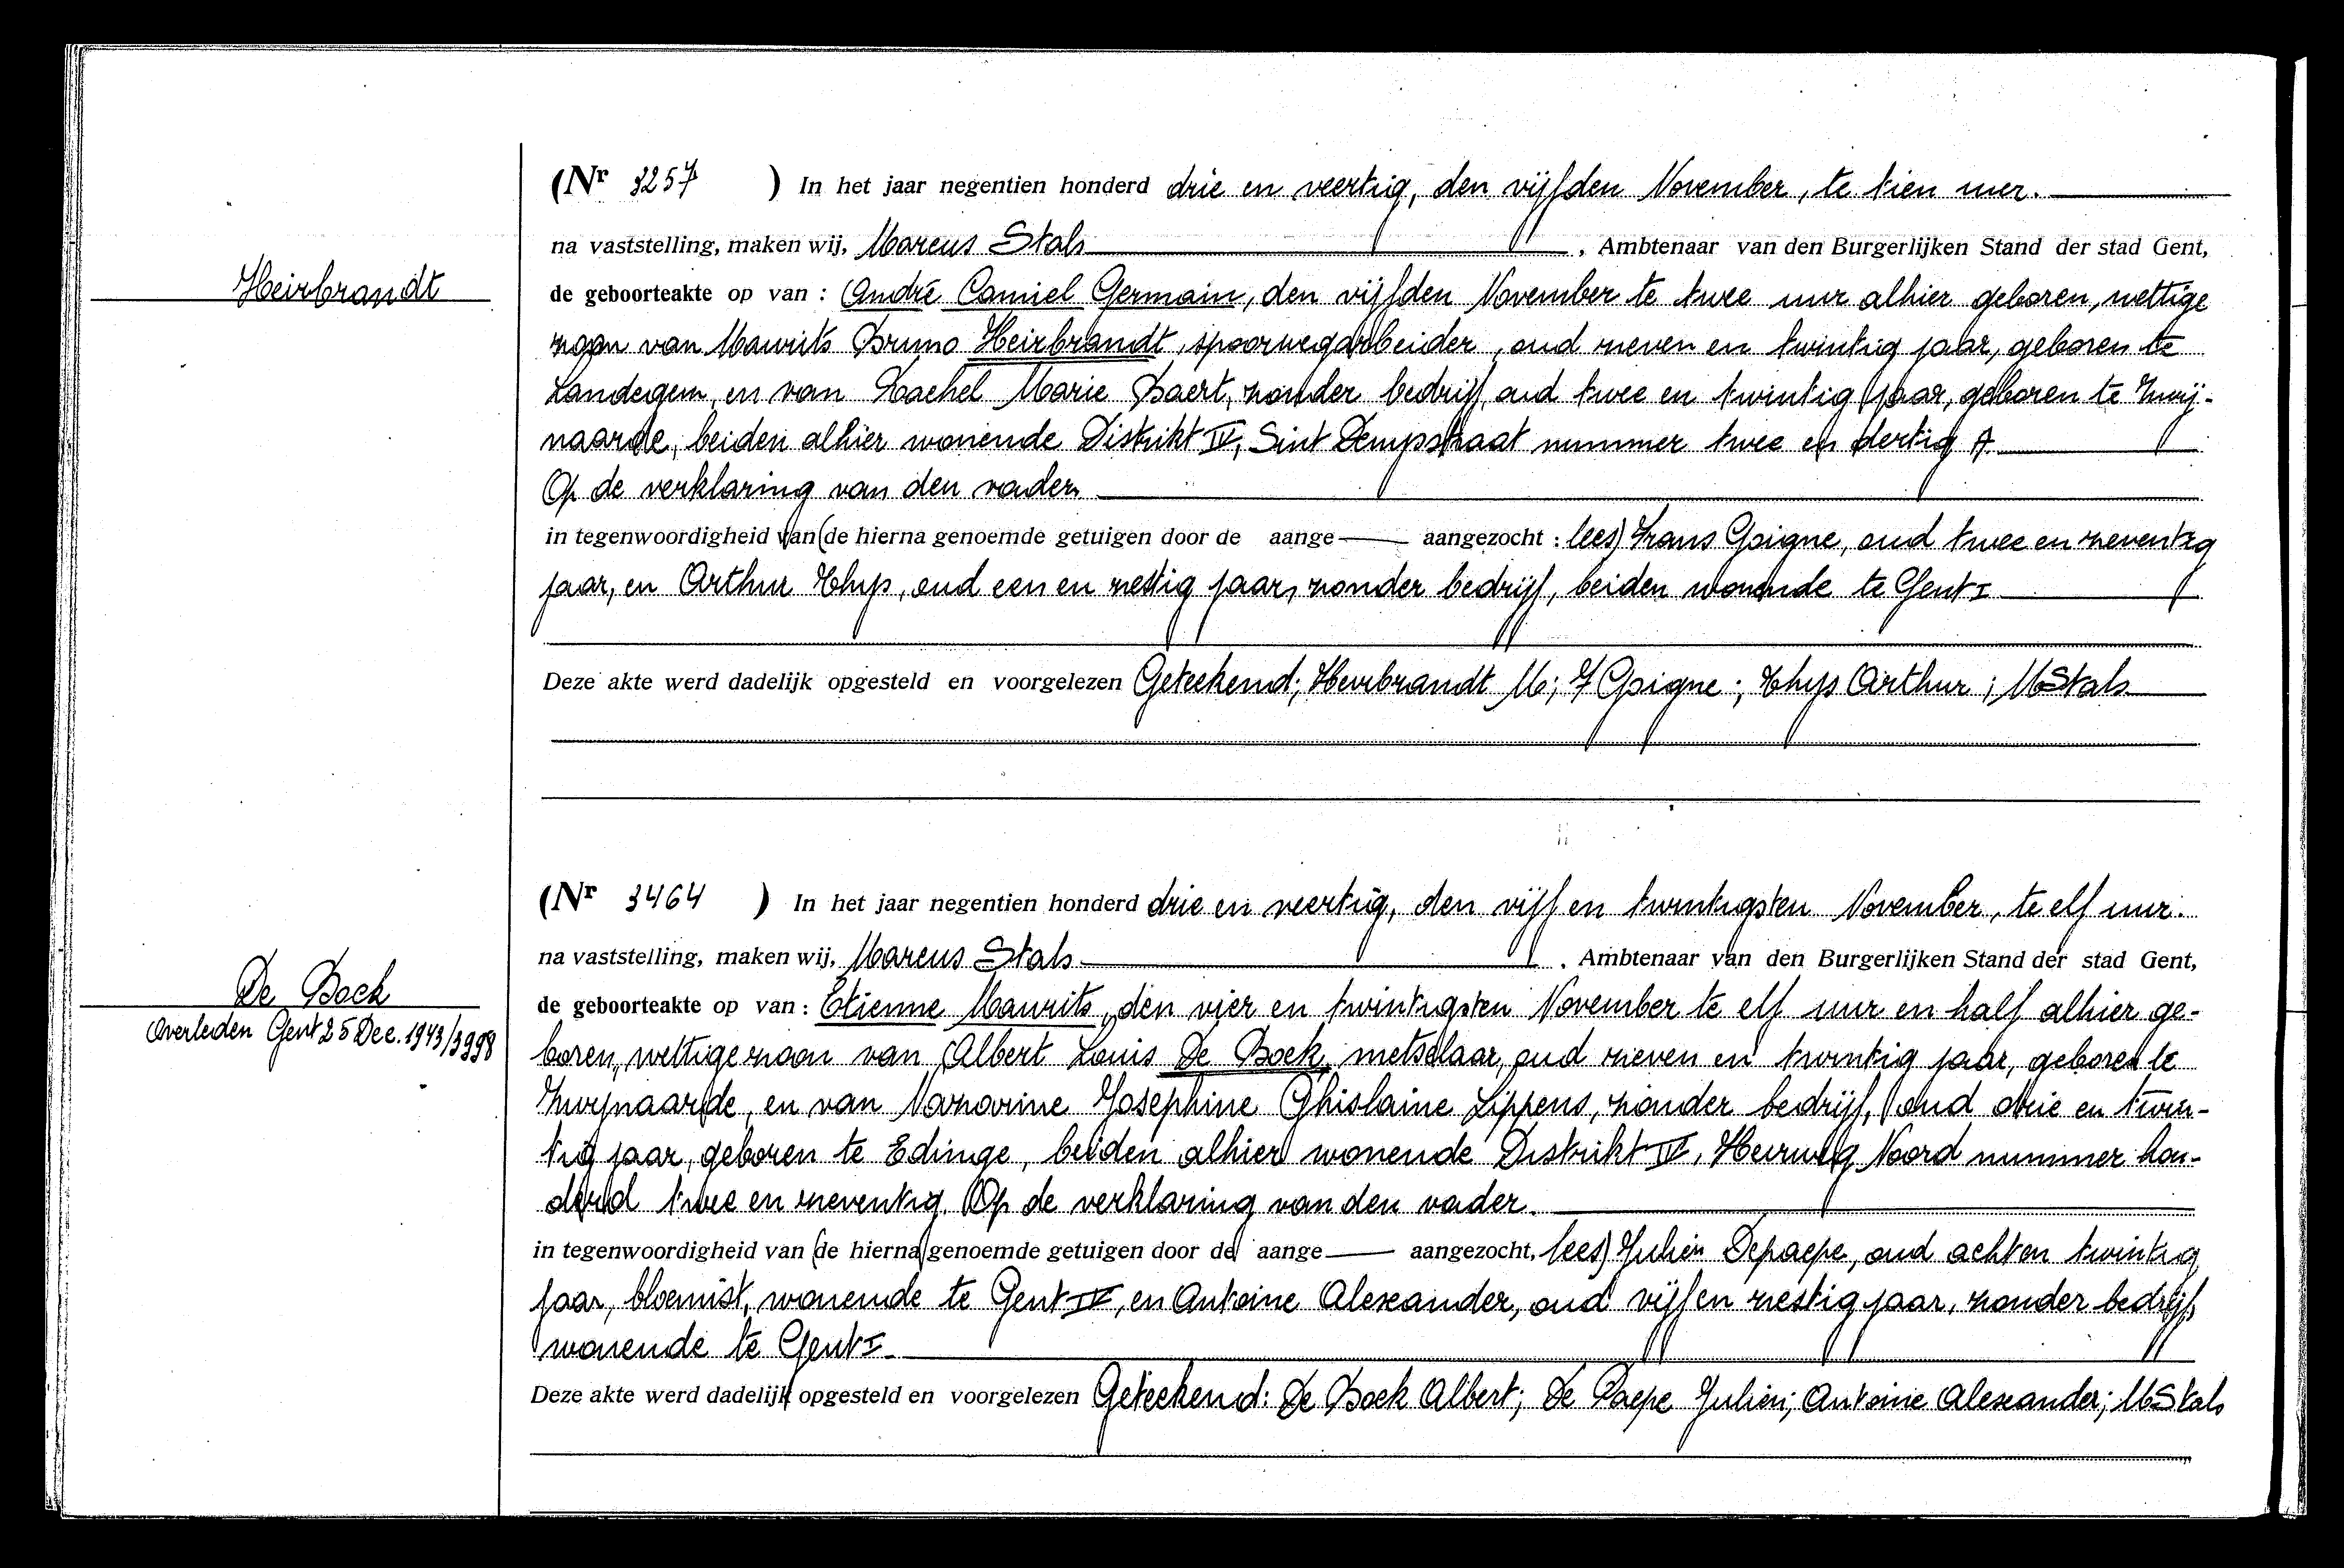 Heirbrandt
(Nr 3257 ) In het jaar negentien honderd drie en veertig, den vijfden November, te tien uur.
na vaststelling, maken wij, Marcus Stals , Ambtenaar van den Burgerlijken Stand der stad Gent,
de geboorteakte op van : André Camiel Germain, den vijfden November te twee uur alhier geboren, wettige
zoon van Maurits Bruno Heirbrandt, spoorwegarbeider, oud zeven en twintig jaar, geboren te
Landegem, en van Rachel Marie Baert, zonder bedrijf, oud twee en twintig jaar, geboren te Zwij-
naarde, beiden alhier wonende Distrikt IV, Sint Denysstraat nummer twee en dertig A.
Op de verklaring van den vader.
in tegenwoordigheid van (de hierna genoemde getuigen door de aange— aangezocht : lees) Frans Goigne, oud twee en zeventig
jaar, en Arthur Thys, oud een en zestig jaar, zonder bedrijf, beiden wonende te Gent I
Deze akte werd dadelijk opgesteld en voorgelezen Geteekend; Heirbrandt M; F Goigne; Thys Arthur; M Stals
De Bock
Overleden Gent 25 Dec. 1943/3998
(Nr 3464 ) In het jaar negentien honderd drie en veertig, den vijf en twintigsten November, te elf uur.
na vaststelling, maken wij, Marcus Stals , Ambtenaar van den Burgerlijken Stand der stad Gent,
de geboorteakte op van : Etienne Maurits, den vier en twintigsten November te elf uur en half alhier ge-
boren, wettige zoon van Albert Louis De Bock, metselaar, oud zeven en twintig jaar, geboren te
Zwijnaarde, en van Nazarine Josephine Ghislaine Lippens, zonder bedrijf, oud drie en twin-
tig jaar, geboren te Edinge, beiden alhier wonende Distrikt IV, Heirweg Noord nummer hon-
derd twee en zeventig. Op de verklaring van den vader.
in tegenwoordigheid van (de hierna genoemde getuigen door de aange— aangezocht, lees) Julien Depaepe, oud acht en twintig
jaar, bloemist, wonende te Gent IV, en Antoine Alexander, oud vijf en zestig jaar, zonder bedrijf,
wonende te Gent I
Deze akte werd dadelijk opgesteld en voorgelezen Geteekend: De Bock Albert; De Paepe Julien; Antoine Alexander; M Stals